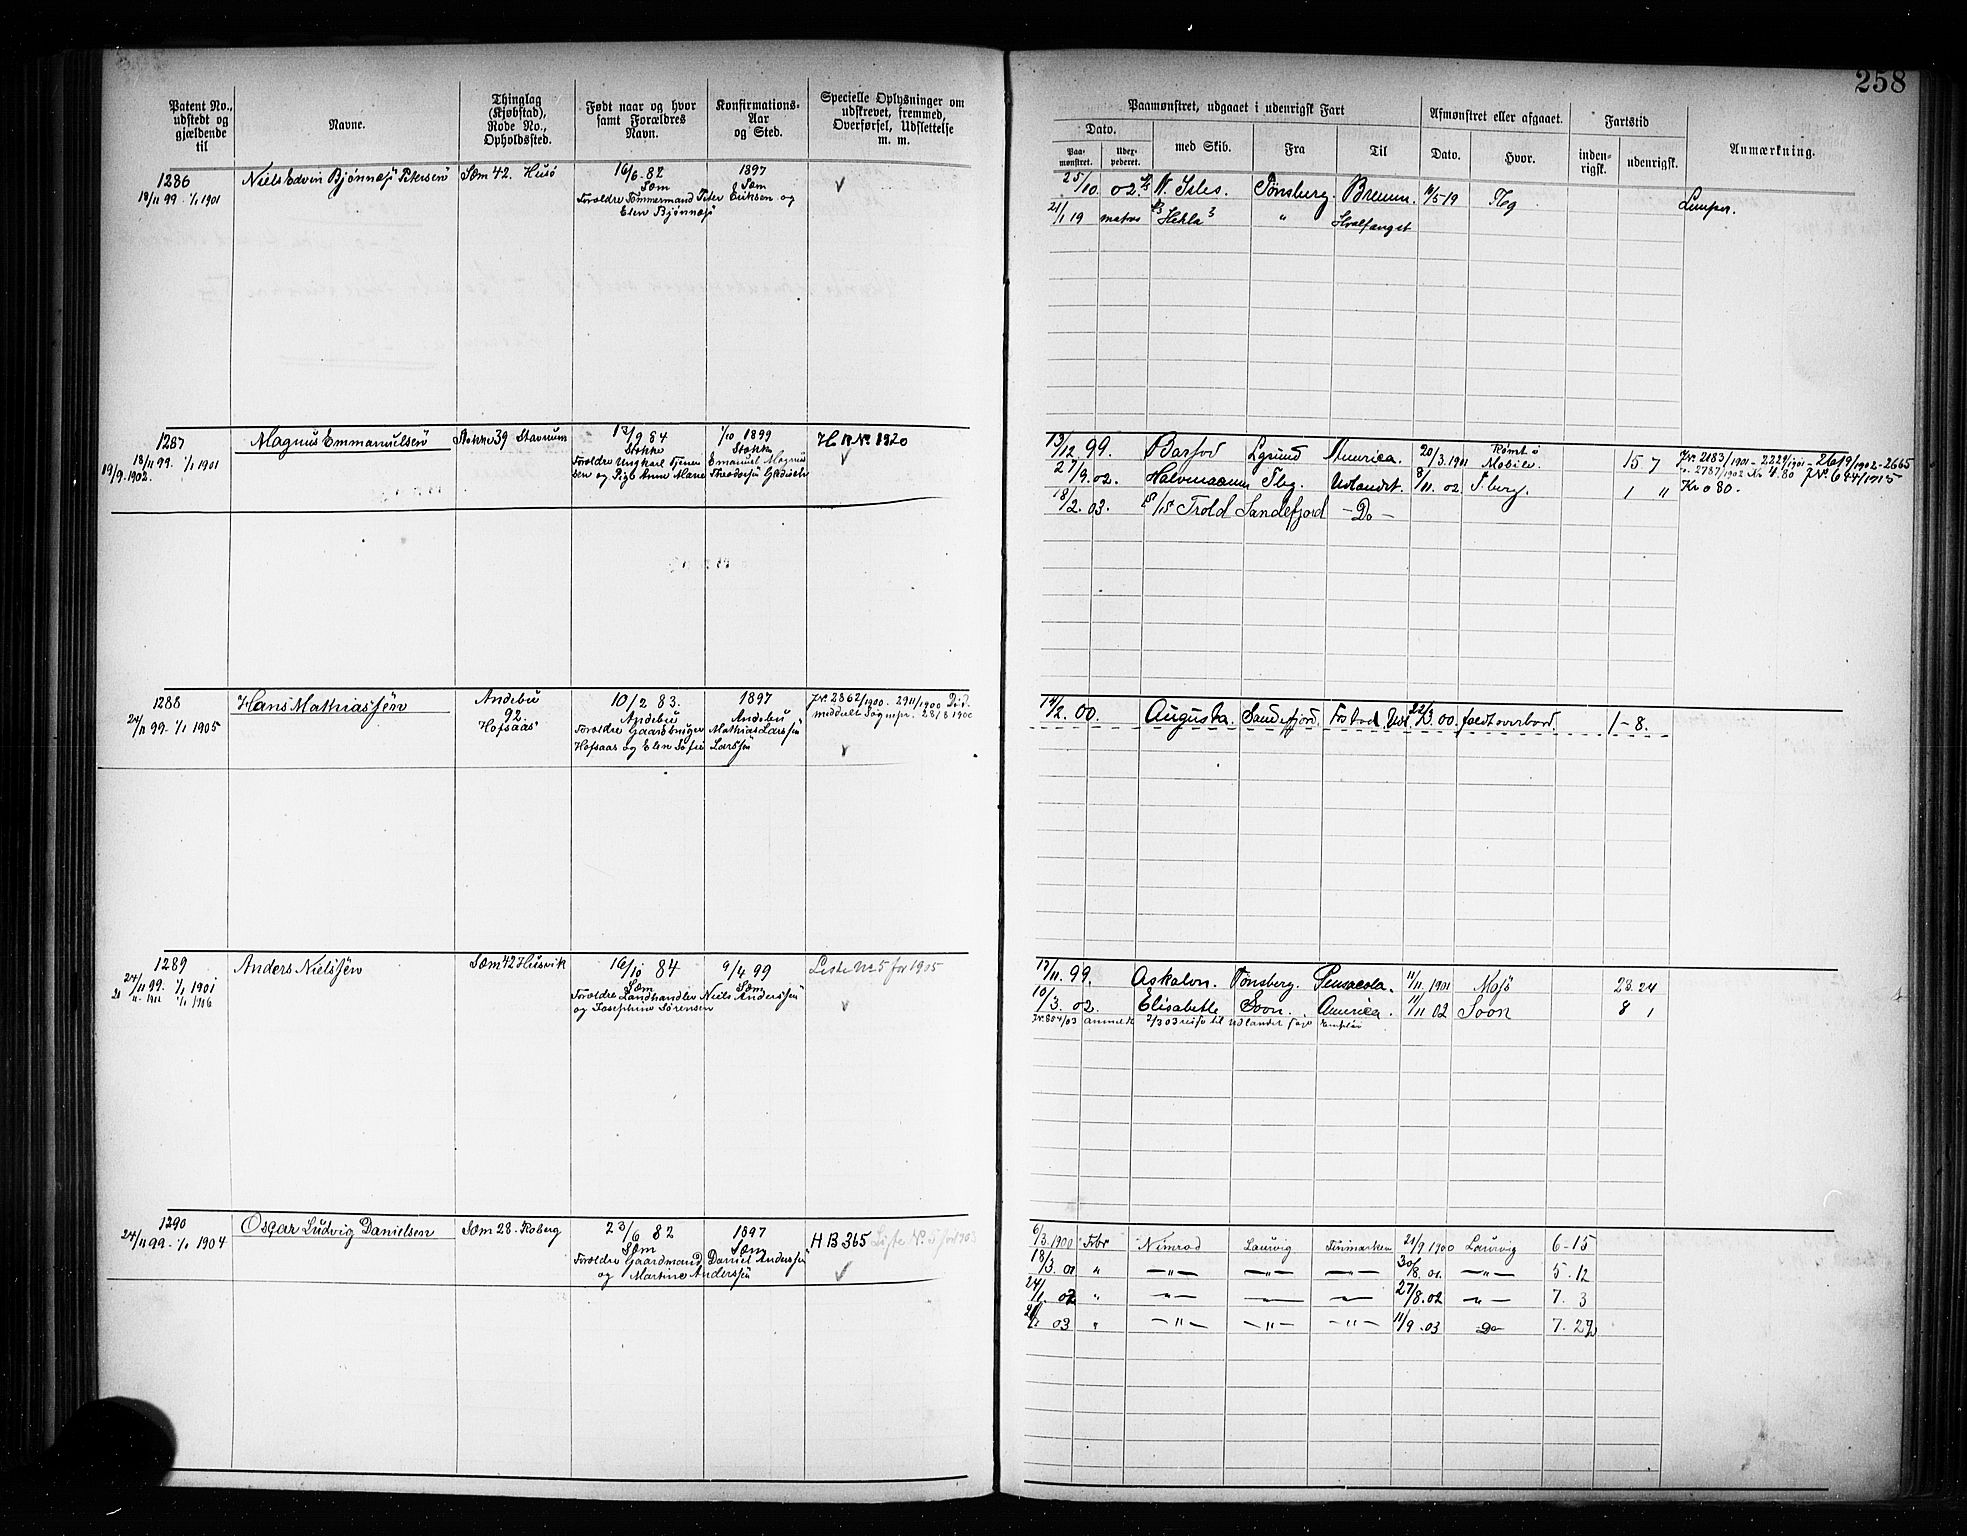 258
Patent No., udstedt og gjældende til
Navne.
Thinglag (Kjøbstad), Rode No., Opholdssted.
Født naar og hvor samt Forældres Navn.
Konfirmations-Aar og Sted.
Specielle Oplysninger om udskrevet, fremmed, Overførsel, Udslettelse m. m.
Paamønstret, udgaaet i udenrigsk Fart
Dato.
Paamønstret.
Udexpederet.
med Skib.
Fra
Til
Afmønstret eller afgaaet.
Dato.
Hvor.
Fartstid
indenrigsk.
udenrigsk.
Anmærkning.
1286
18/11 99. 1/1 1901
Niels Edvin Bjønness Petersen
Sem 42. Husö
16/6 82
Sem
Forældre Tømmermand Peter Eriksen og
Elen Bjønness
1897
Sem
25/10 02
Tønsberg. Bremen. 11/5 19 Tbg
Lemper.
21/1 19 matros Hekla " Hvalfanget
1287
18/11 99. 1/1 1901
19/9. 1902.
Magnus Emmanuelsen
Stokke 39 Stavnum
13/9 84
Stokke
Forældre Ungkarl Emanuel Magnus
sen og Pige Anne Marie
1/10 1899
Stokke
H B No 1820
13/12 99. Barfod Egrsund America. 20/3. 1901 Rømt i Mobile 15 7
27/9. 02. Tbg. Udlandet. 8/11. 02. T.berg. 1 "
Kr 0 80.
18/2. 03. Trold Sandefjord - Do -
1288
24/11 99. 1/1 1905
Hans Mathiassen
Andebu
92
Hofsaas
10/2 83.
Andebu
Forældre Gaardbruger Mathias Larssen
Hofsaas og Elen Sofie Larssen
1897
Andebu
Jr. 2362/1900. 2911/1900 Död.
meddelt Sognepr. 28/8 1900
14/2. 00. Augusta. Sandefjord. 22/3. 00. faldt overbord. 1-8.
1289
24/11 99. 1/1 1901
Anders Nielssen
Sem 42 Husvik
16/10 84
Sem
Forældre Landhandler Niels Anderssen
og Josephine Sørensen
9/4 99
Sem
Liste No 5 for 1905
17/11. 99. Askalon. Tønsberg. Pensacola. 11/11. 1901 Mosö 23. 24
10/3. 02. Elisabeth Soon. America. 11/11 02 Soon 8 1
Jr. 884/03 anmeldt 2/3 03 reise til Udlandet
1290
24/11 99. 1/1 1904
Oscar Ludvig Danielsen
Sem 28. Roberg
23/6 82
Sem
Forældre Gaardmand Daniel Anderssen
og Martine Anderssen
1897
Sem
H B 365 Liste No. 5 for 1903
6/3. 1900 Febr Nimrod Laurvig Finmarken 21/9 1900 Laurvig 6-15
18/3. 01 " -"- -"- -"- 30/8. 01. -"- 5. 12
24/1. 02 " -"- -"- -"- 27/8. 02 -"- 7. 3
03 " -"- -"- -"- 11/9. 03 Do 7. 27